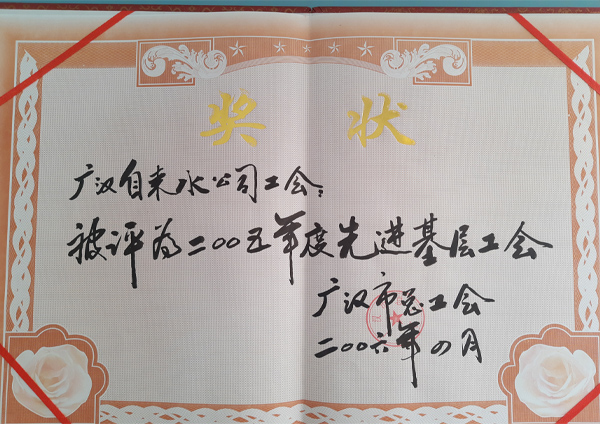 奖状
广汉自来水公司工会：
被评为二00五年度先进基层工会
广汉市总工会
二00六年四月